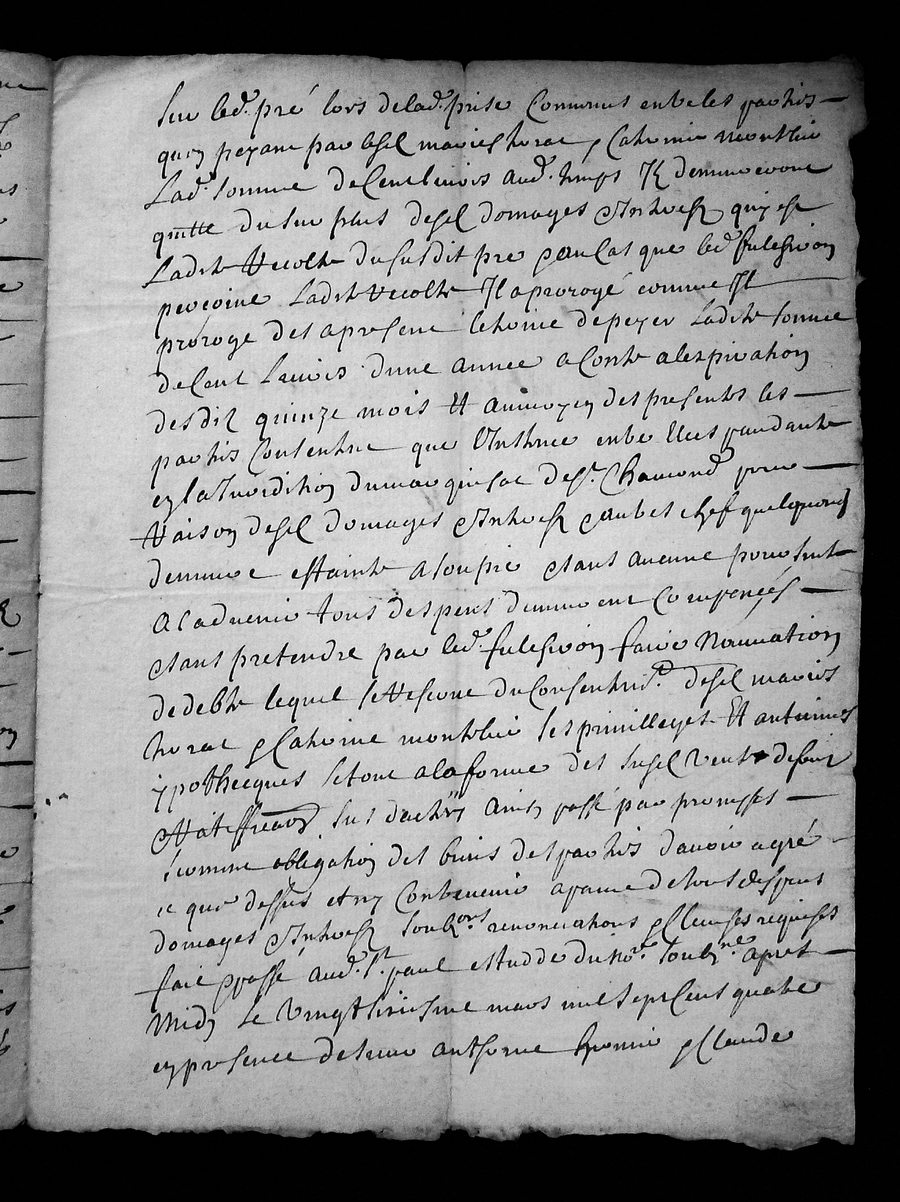 Sur led. pré lors de lad. prise Communs entre les parties
quen payant par lesd mariés horac & Catherine montelier
Lad. Somme de Cent livres aud. temps Il demeureront
quitte du surplus desd domages Interest quy est
Ladite Recolte du susdit pre & au Cas que led. fulcheiron
percoive Ladite Recolte Il a prorogé comme Il
proroge des a present le terme de payer Ladite Somme
de Cent Livres dune année a Conter a lexpiration
desdit quinze mois Et au moyen des presentes les
parties Consentent que linstance entre Elles pendante
en la Jurdition du marquisat de St. Chamond pour
Raison desd domages Interest & autres chefs quelquonq
demeure estainte assoupie & sans aucune poursuite
a Ladvenir tous despens demeurent Compensés
& sans pretendre par led. faire Novation
de debte lequel se reserve du Consentemt. desd mariés
horac & Catherine montelier ses privilleges Et antieures
ypothecques le tout a la forme des susd vente
sus Ainsy passé par promesses
serment obligation des biens des parties davoir agré
ce que dessus et ny Contrevenir a peine de tous despens
domages Interest soubons renonciations & Clauses requises
fait & passé aud. St. paul estudde du nore. soubne. apres
Midy Le Vingt sixiesme mars mil sept Cent quatre
en presence de sieur anthoine & Claude